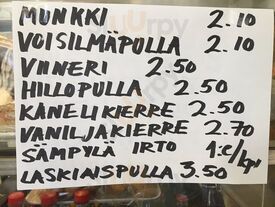 MUNKKI 2.10
VOISILMÄPULLA 2.10
VIINERI 2.50
HILLOPULLA 2.50
KANELIKIERRE 2.50
VANILJAKIERRE 2.70
SÄMPYLÄ IRTO 1.€/kpl
LASKIAISPULLA 3.50